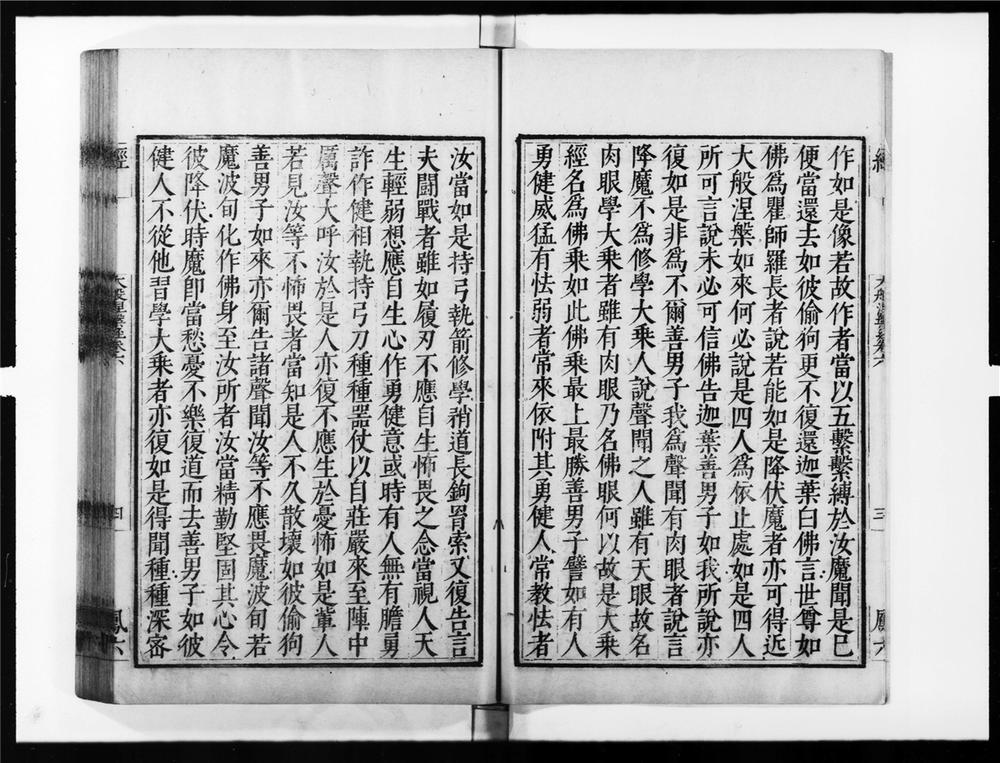 作如是像若故作者當以五繫繫縛於汝魔聞是已
便當還去如彼偷狗更不復還迦葉白佛言世尊如
佛爲瞿師羅長者說若能如是降伏魔者亦可得近
大般涅槃如來何必說是四人爲依止處如是四人
所可言說未必可信佛告迦葉善男子如我所說亦
復如是非爲不爾善男子我爲聲聞有肉眼者說言
降魔不爲修學大乘人說聲聞之人雖有天眼故名
肉眼學大乘者雖有肉眼乃名佛眼何以故是大乘
經名爲佛乘如此佛乘最上最勝善男子譬如有人
勇健威猛有怯弱者常來依附其勇健人常教怯者
汝當如是持弓執箭修學矟道長鉤罥索又復告言
夫鬬戰者雖如履刃不應自生怖畏之念當視人天
生輕弱想應自生心作勇健意或時有人無有膽勇
詐作健相執持弓刀種種器仗以自莊嚴來至陣中
厲聲大呼汝於是人亦復不應生於憂怖如是輩人
若見汝等不怖畏者當知是人不久散壞如彼偷狗
善男子如來亦爾告諸聲聞汝等不應畏魔波旬若
魔波旬化作佛身至汝所者汝當精勤堅固其心令
彼降伏時魔卽當愁憂不樂復道而去善男子如彼
健人不從他習學大乘者亦復如是得聞種種深密
經
四